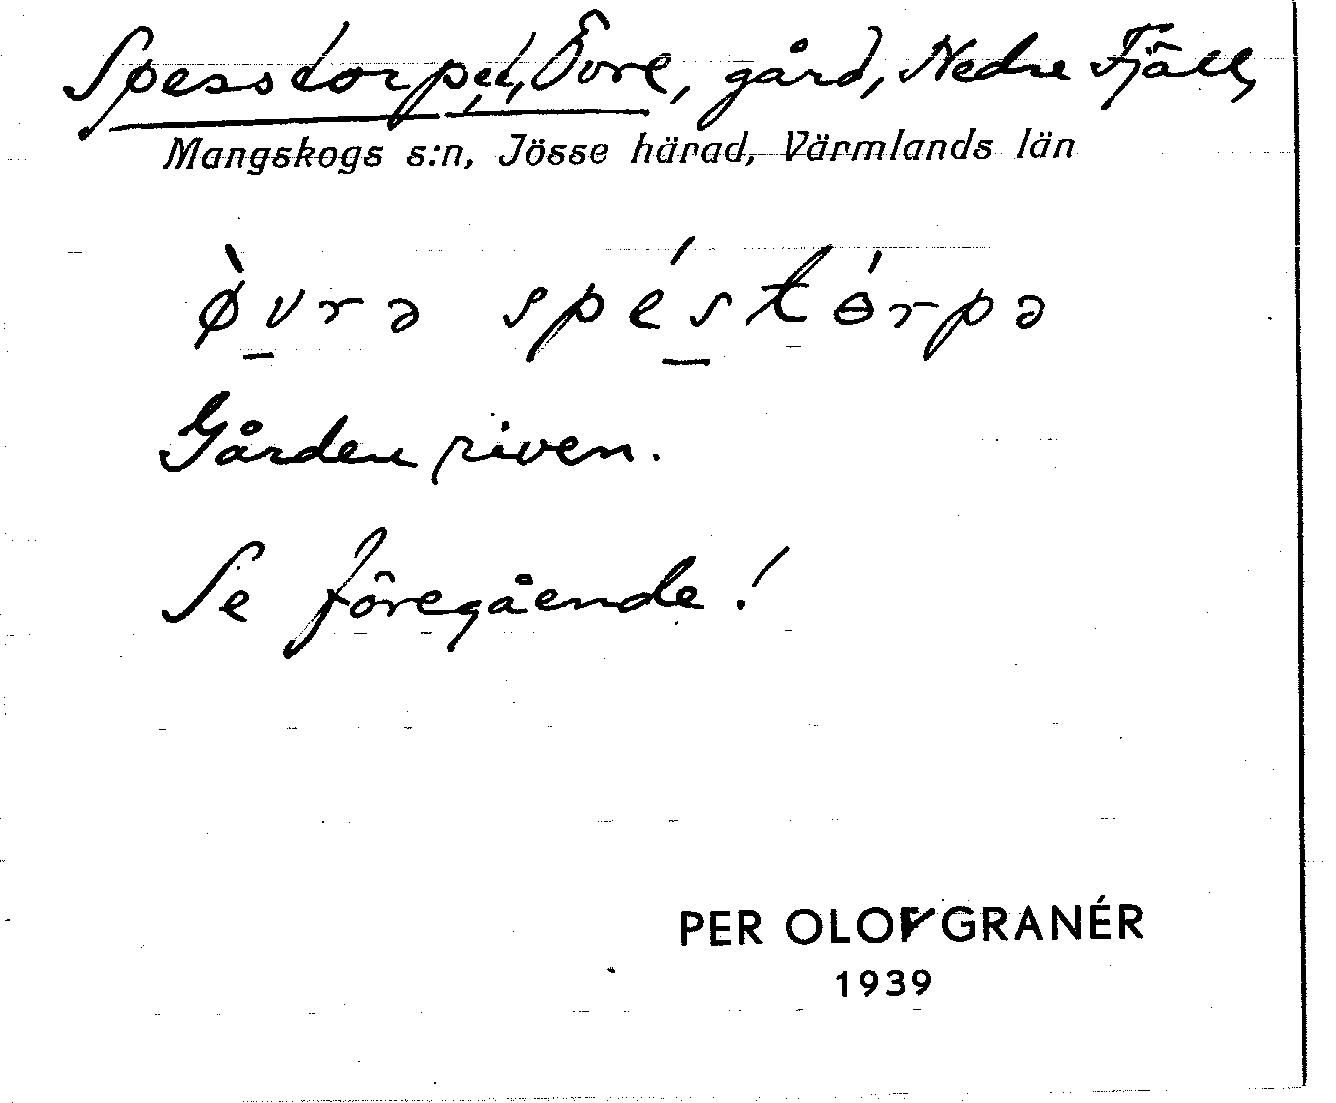 Spesstorpet, Övre, gård, Nedre Fjäll,
Mangskogs s:n, Jösse härad, Värmlands län
ø̀vrə spéstɵ́rpə
Gården riven.
Se föregående!
PER OLOF GRANÉR
1939